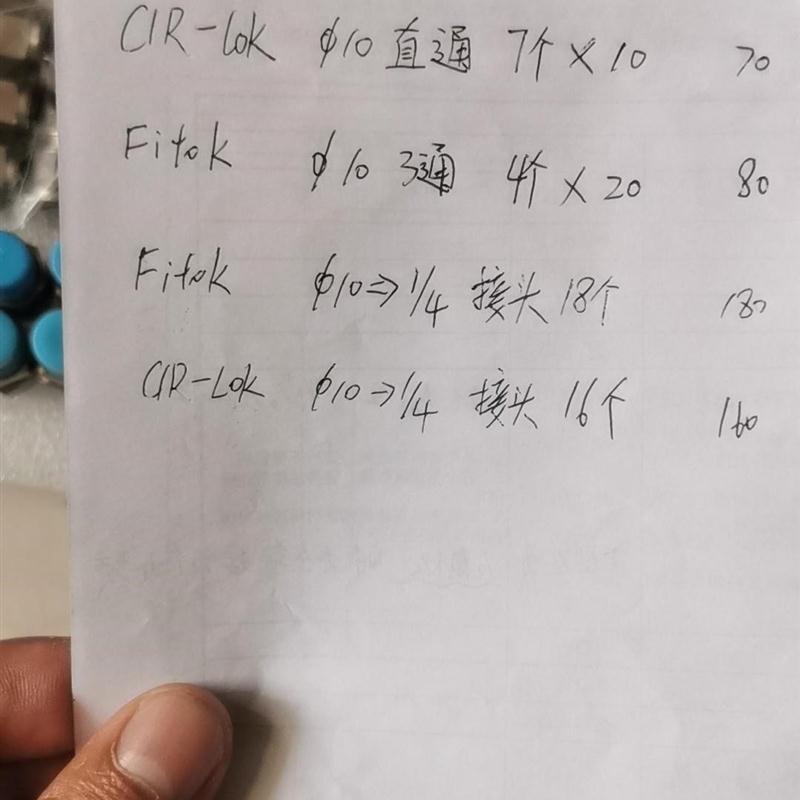 CIR-Lok φ10 直通 7个×10 70
Fitok φ10 3通 4个×20 80
Fitok φ10⇒1/4 接头 18个 180
CIR-Lok φ10→1/4 接头 16个 160